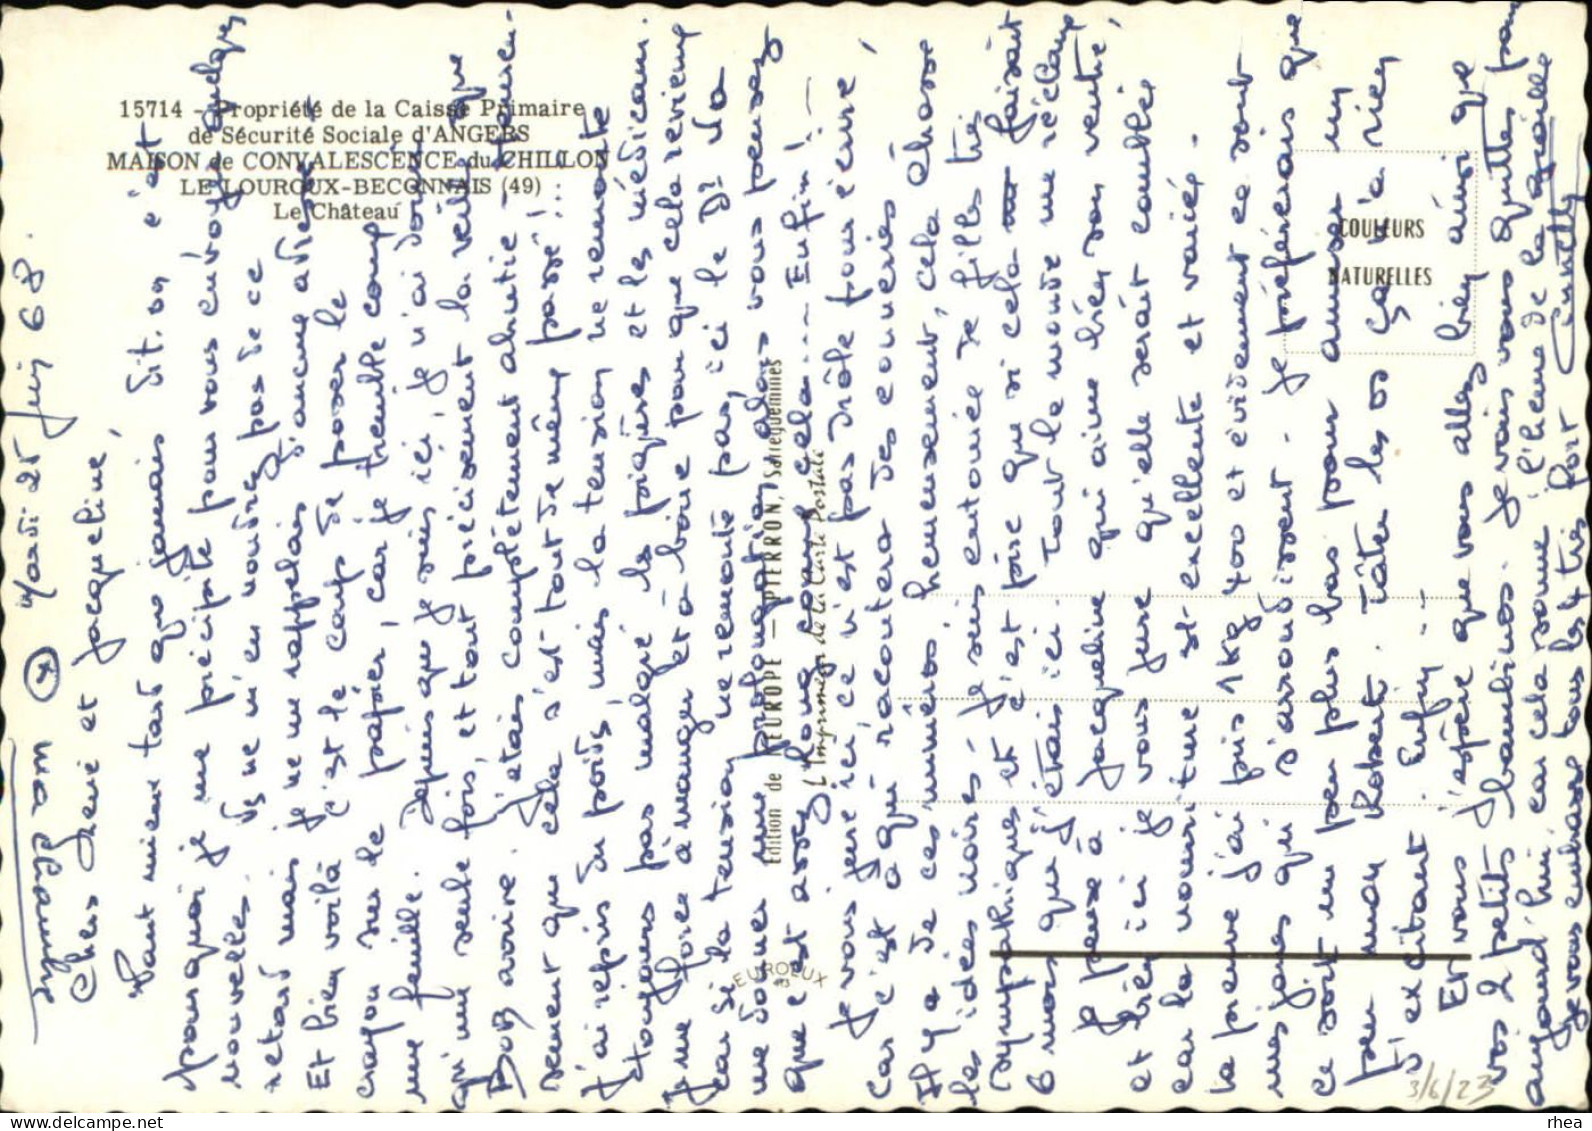 15714 - Propriété de la Caisse Primaire
de Sécurité Sociale d'ANGERS
MAISON de CONVALESCENCE du CHILLON
LE LOUROUX-BECONNAIS (49)
Le Château
COULEURS
NATURELLES
Edition de l'EUROPE - PIERRON, Sarreguemines
L'Imprimeur de la Carte Postale
EUROLUX
Mardi 25 Juin 68.
Chers René et Jacqueline,
Vaut mieux tard que jamais dit-on c'est
pourquoi je me précipite pour vous envoyer quelques
nouvelles. Vs ne m'en voudrez pas de ce
retard mais je ne me rappelais d'aucune adresse
Et bien voilà c'est le coup de poser le
crayon sur le papier, car je tremble comme
une feuille. Depuis que je suis ici, je n'ai dormi
qu'une seule fois, et tout précisément la veille que
Bob arrive. J'étais complètement abrutie - heureu-
sement que cela s'est tout de même passé !...
J'ai repris du poids, mais la tension ne remonte
toujours pas malgré les piqûres et les médicam.
Je me force à manger et à boire pour que cela revienne
car si la tension ne remonte pas, ici le Dr va
me donner une prolongation, alors vous pensez
que c'est assez long comme cela.... Enfin ! -
Je vous jure ici, ce n'est pas drôle tous les jours,
car c'est à qui racontera des conneries
Il y a de ces numéros heureusement, cela chasse
les idées noires - Je suis entourée de filles très
sympathiques et c'est pire que si cela faisait
6 mois que j'étais ici. Tout le monde me réclame
Je pense à Jacqueline qui aime bien son ventre,
et bien ici je vous jure qu'elle serait comblée
car la nourriture est excellente et variée -
la preuve j'ai pris 1kg 400 et évidemment ce sont
mes joues qui s'arrondissent - Je préférerais que
ce soit un peu plus bas pour amuser un
peu mon Robert. Tâter les os ça n'a rien
d'excitant. Enfin --
Et vous j'espère que vous allez bien ainsi que
vos 2 petits bambinos. Je vais vous quitter pour
aujourd'hui car cela sonne l'heure de la
Je vous embrasse tous les 4 très fort
3/6/23
rhea